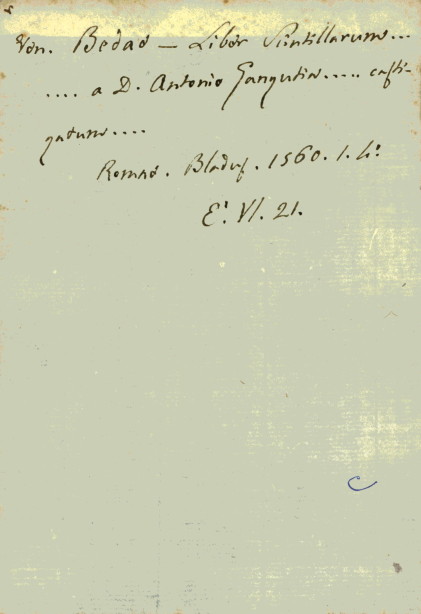 Ven. Bedae — Liber Scintillarum...
.... a D. Antonio Zangutia..... casti-
gatum....
Romae. Blad9. 1560. 1. 4º.
E. VI. 21.